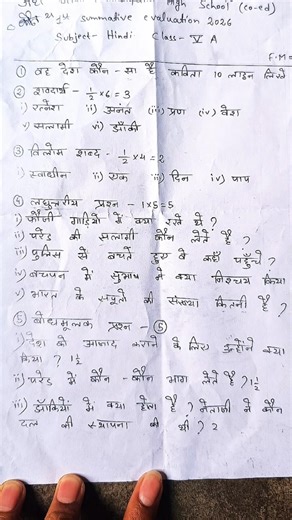 High School (co-ed)
summative evaluation 2026
Subject- Hindi Class- V A
F.M=
① वह देश कौन-सा है कविता 10 लाइन लिखें
② शब्दार्थ - ½×6=3
i) रत्नेश ii) अनंत iii) प्रण iv) वेश
v) सलामी vi) झाँकी
③ विलोम शब्द - ½×4=2
i) स्वाधीन ii) एक iii) दिन iv) पाप
④ लघुत्तरीय प्रश्न - 1×5=5
i) फौजी गाड़ियों में क्या रखे थे?
ii) परेड की सलामी कौन लेते हैं?
iii) पुलिस से बचते हुए वे कहाँ पहुँचे?
iv) बचपन में सुभाष ने क्या निश्चय किया
v) भारत के सपूतों की संख्या कितनी है?
⑤ बोधमूलक प्रश्न - ⑤
i) देश को आजाद कराने के लिए उन्होंने क्या
किया? 1½
ii) परेड में कौन-कौन भाग लेते हैं? 1½
iii) झाँकियों में क्या होता है? नेताजी ने कौन
दल की स्थापना की थी? 2